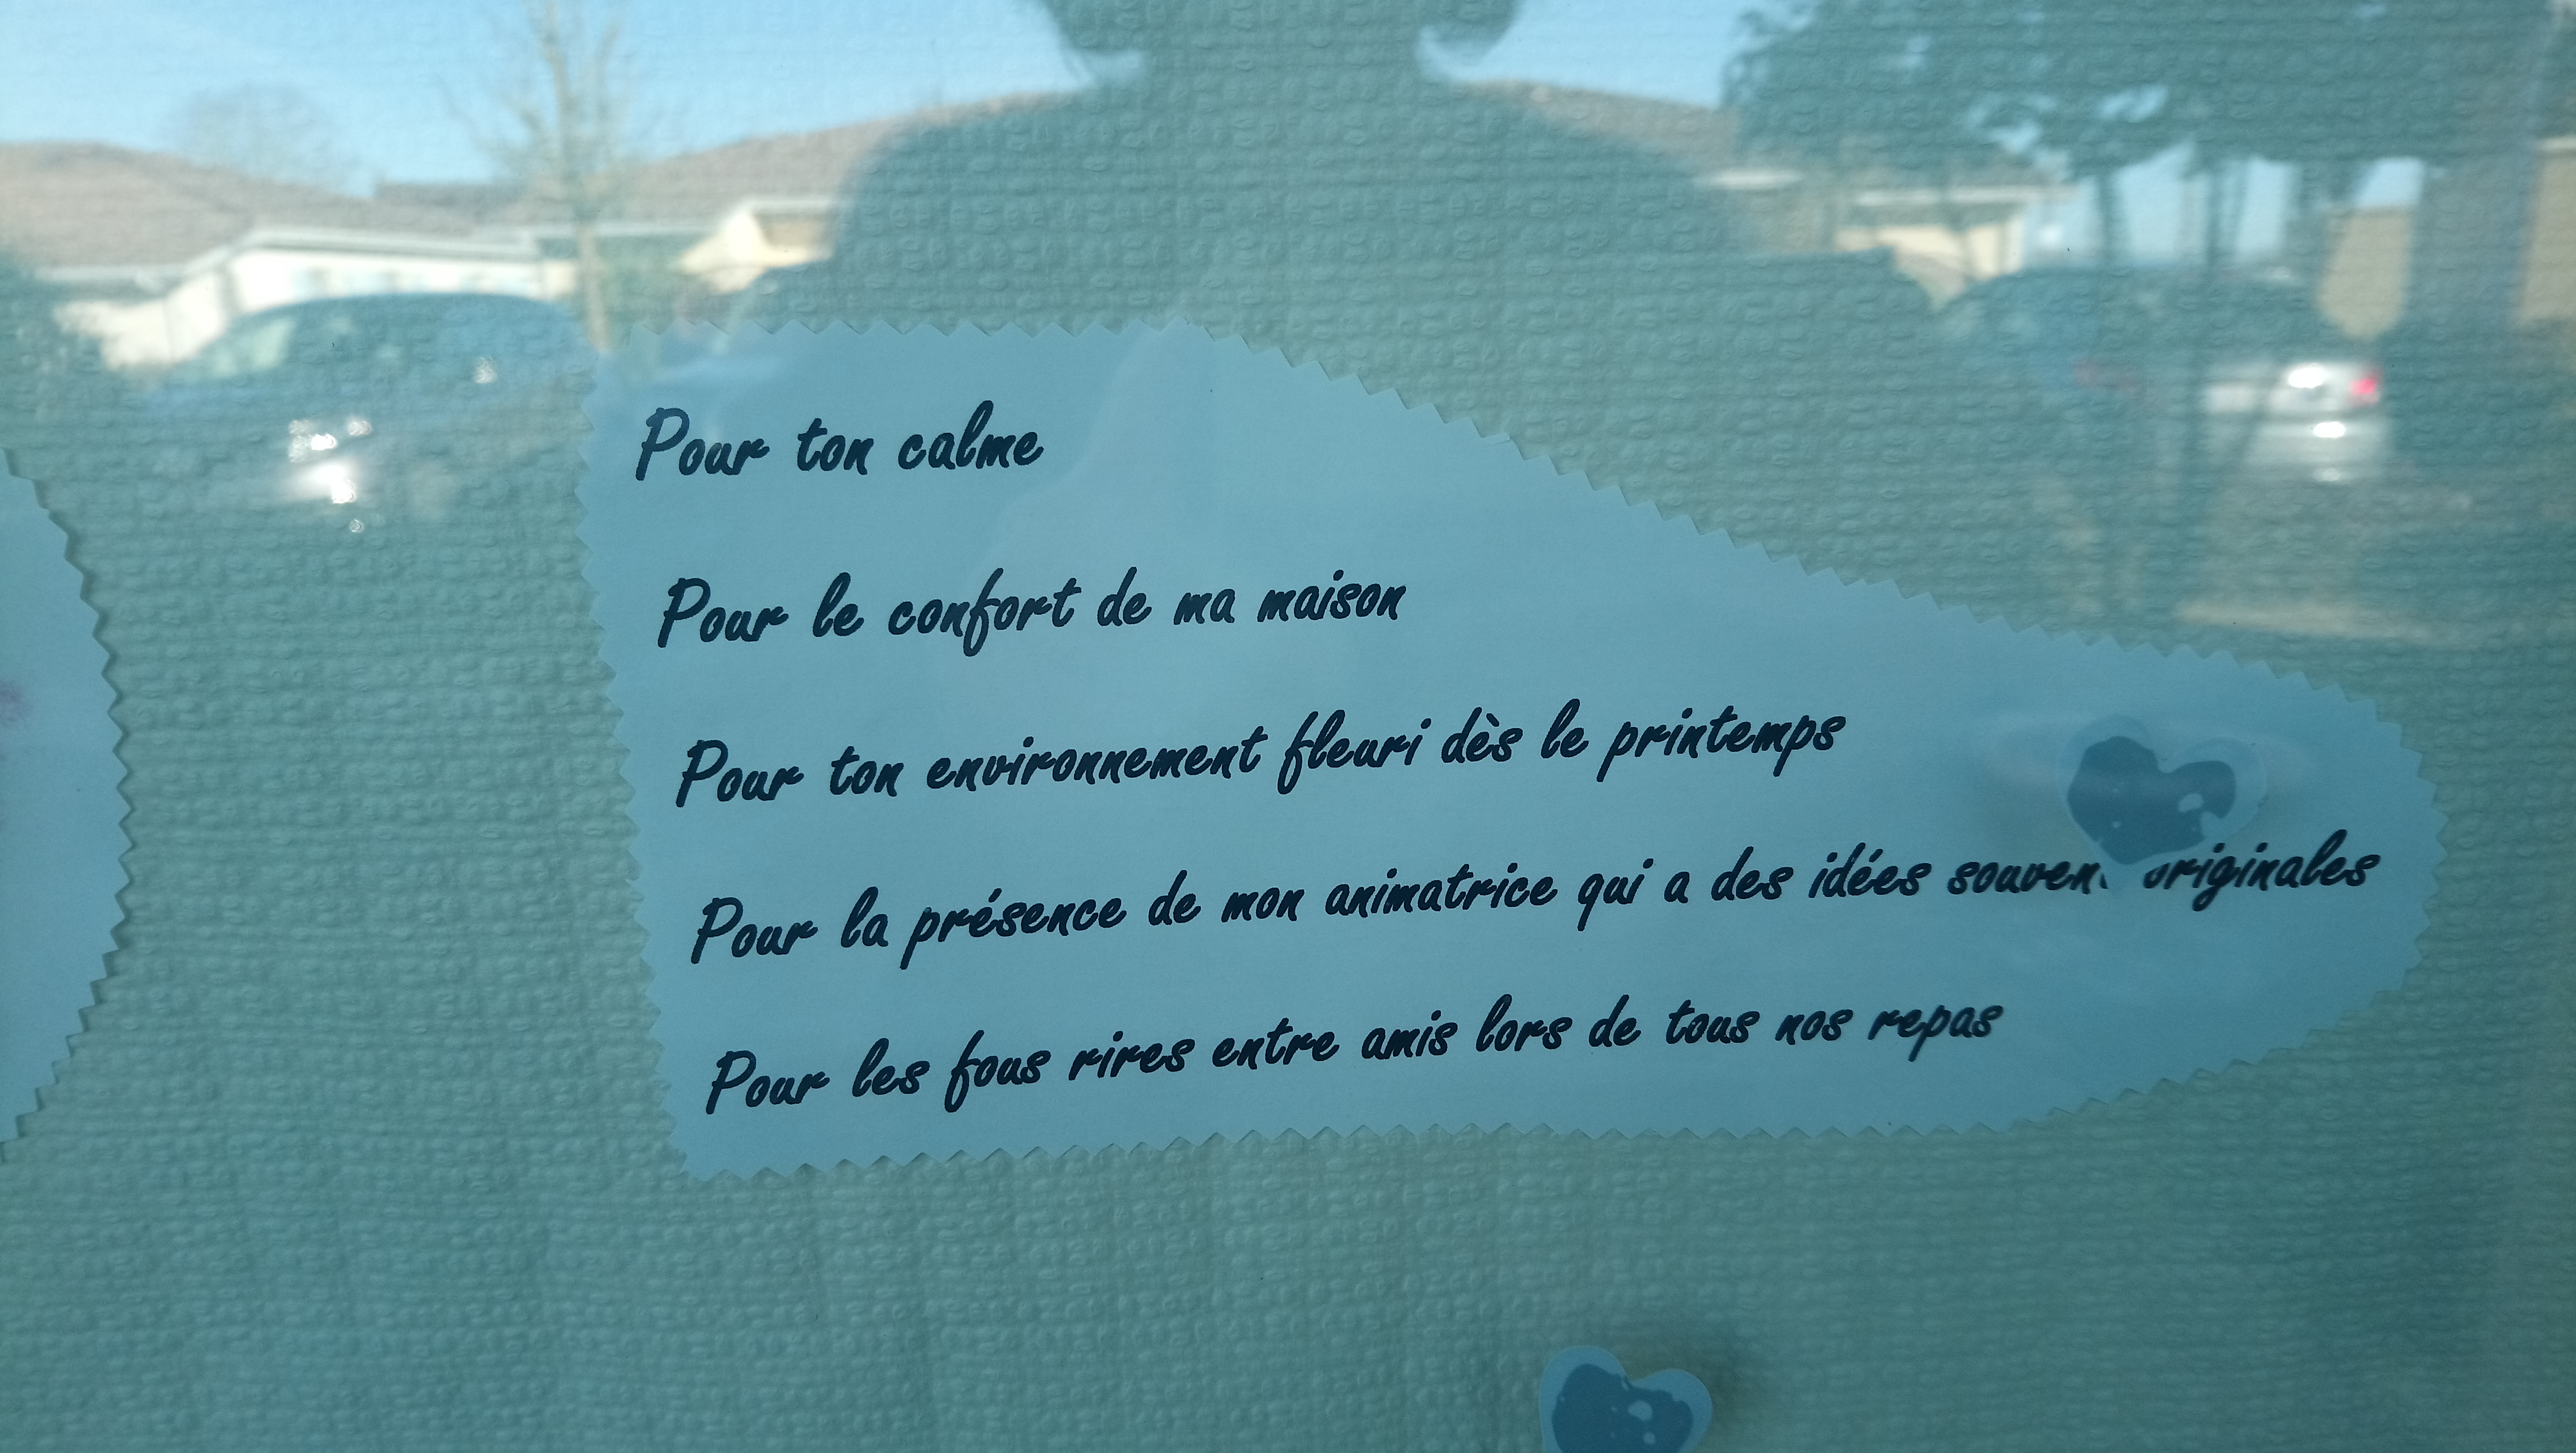 Pour ton calme
Pour le confort de ma maison
Pour ton environnement fleuri dès le printemps
Pour la présence de mon animatrice qui a des idées souvent originales
Pour les fous rires entre amis lors de tous nos repas